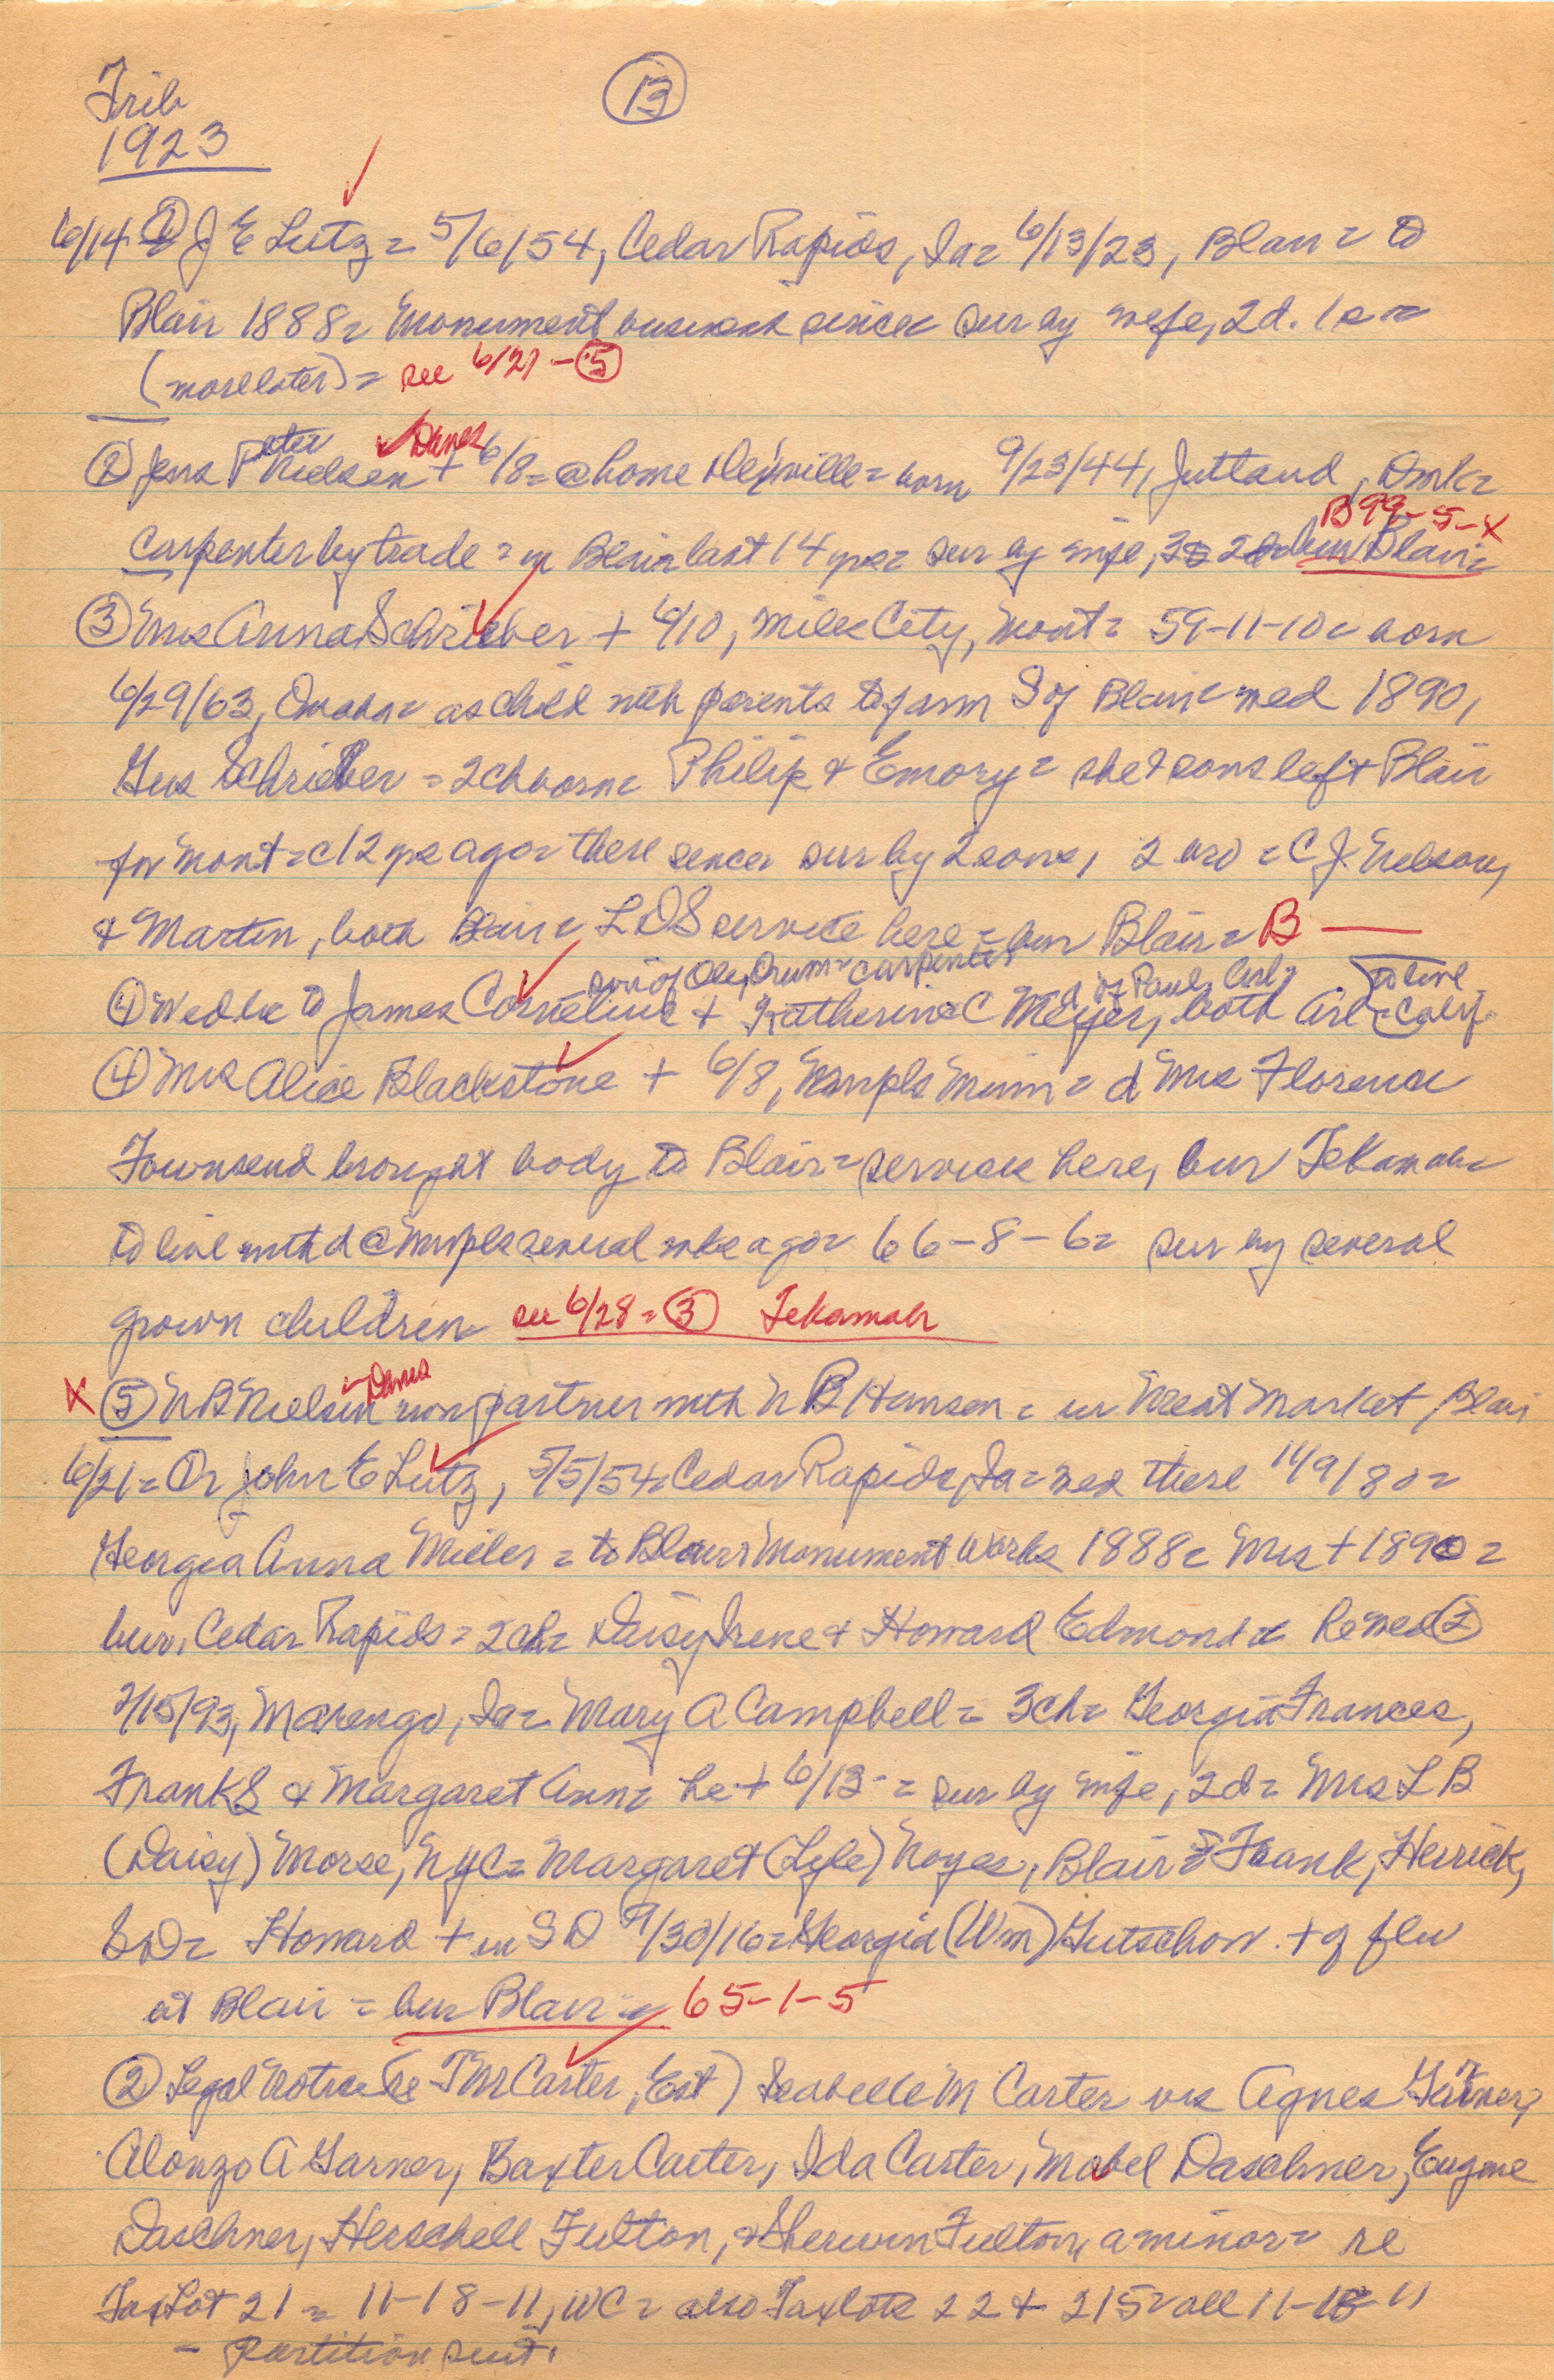 Trib
(13)
1923
6/14 (1) J E Lutz = 5/6/54, Cedar Rapids, Ia = 6/13/23, Blair = to
Blair 1888 = Monument business since = sur by wife, 2d. 1s =
(more later) = see 6/21 - (5)
(2) Jens Peter Nielsen + 6/8 = @ home = born 9/23/44, Jutland, Dmk =
Danes
B99-5-X
Carpenter by trade = in Blair last 14 yrs = sur by wife, 2d bur Blair =
(3) Mrs Anna Schrieber + 6/10, Miles City, Mont = 59-11-10 = born
6/29/63, Omaha = as child with parents to farm S of Blair = med 1890,
Gus Schrieber = 2 ch born = Philip & Emory = she & sons left Blair
for Mont = c 12 yrs ago = there since = sur by 2 sons, 2 bro = C J Nelson,
& Martin, both Blair = LDS service here = bur Blair = B —
son of Ole, Orum = carpenter d of Paul, Arl = to live
(4) Wed lic to James Cornelius + Katherine C Meyer, both Arl = Calif.
(4) Mrs Alice Blackstone + 6/8, Mnpls Minn = d Mrs Florence
Townsend brought body to Blair = service here, bur Tekamah =
to live with d @ Mnpls several wks ago = 66-8-6 = sur by several
grown children see 6/28 = (3) Tekamah
Danes
X (5) N B Nielsen now partner with N B Hansen = in Meat Market, Blair
6/21 = (1) John E Lutz, 5/5/54 = Cedar Rapids, Ia = med there 11/9/80 =
Georgia Anna Miller = to Blair = Monument Works 1888 = Mrs + 1890 =
bur, Cedar Rapids = 2 ch = Daisy Irene & Howard Edmond = he med (2)
2/15/93, Marengo, Ia = Mary A Campbell = 3 ch = Georgia Frances,
Frank S & Margaret Ann = he + 6/13 = sur by wife, 2d = Mrs L B
(Daisy) Morse, NYC = Margaret (Lyle) Noyes, Blair = Frank, Herrick,
SD = Howard + in SD 9/30/16 = Georgia (Wm) Gutschow + of flu
at Blair = bur Blair = 65-1-5
(2) Legal Notice (re T M Carter, Est) Isabelle M Carter vs Agnes Garner,
Alonzo A Garner, Baxter Carter, Ida Carter, Mabel Daschner, Eugene
Daschner, Herschell Fulton, & Sherwin Fulton, a minor = re
Tax Lot 21 = 11-18-11, WC = also Tax lots 22 + 215 = all 11-18-11
- Partition suit.